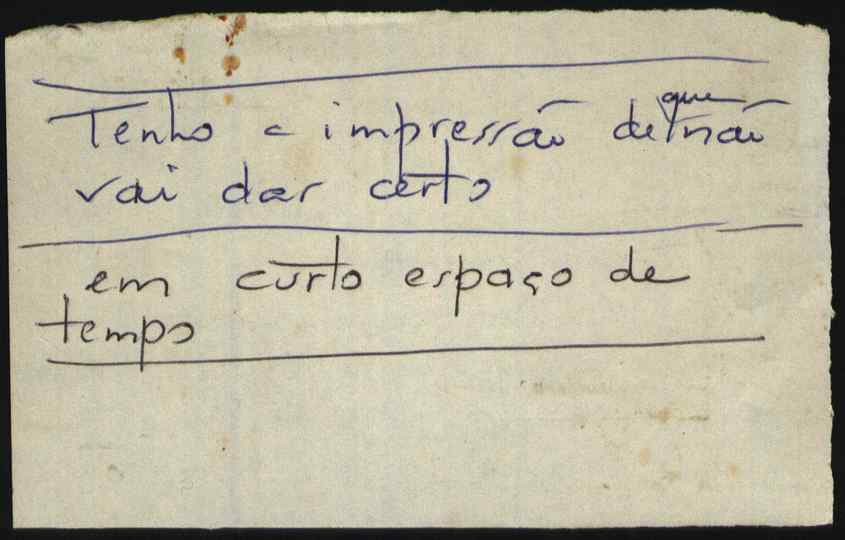 Tenho a impressão de que não
vai dar certo
em curto espaço de
tempo